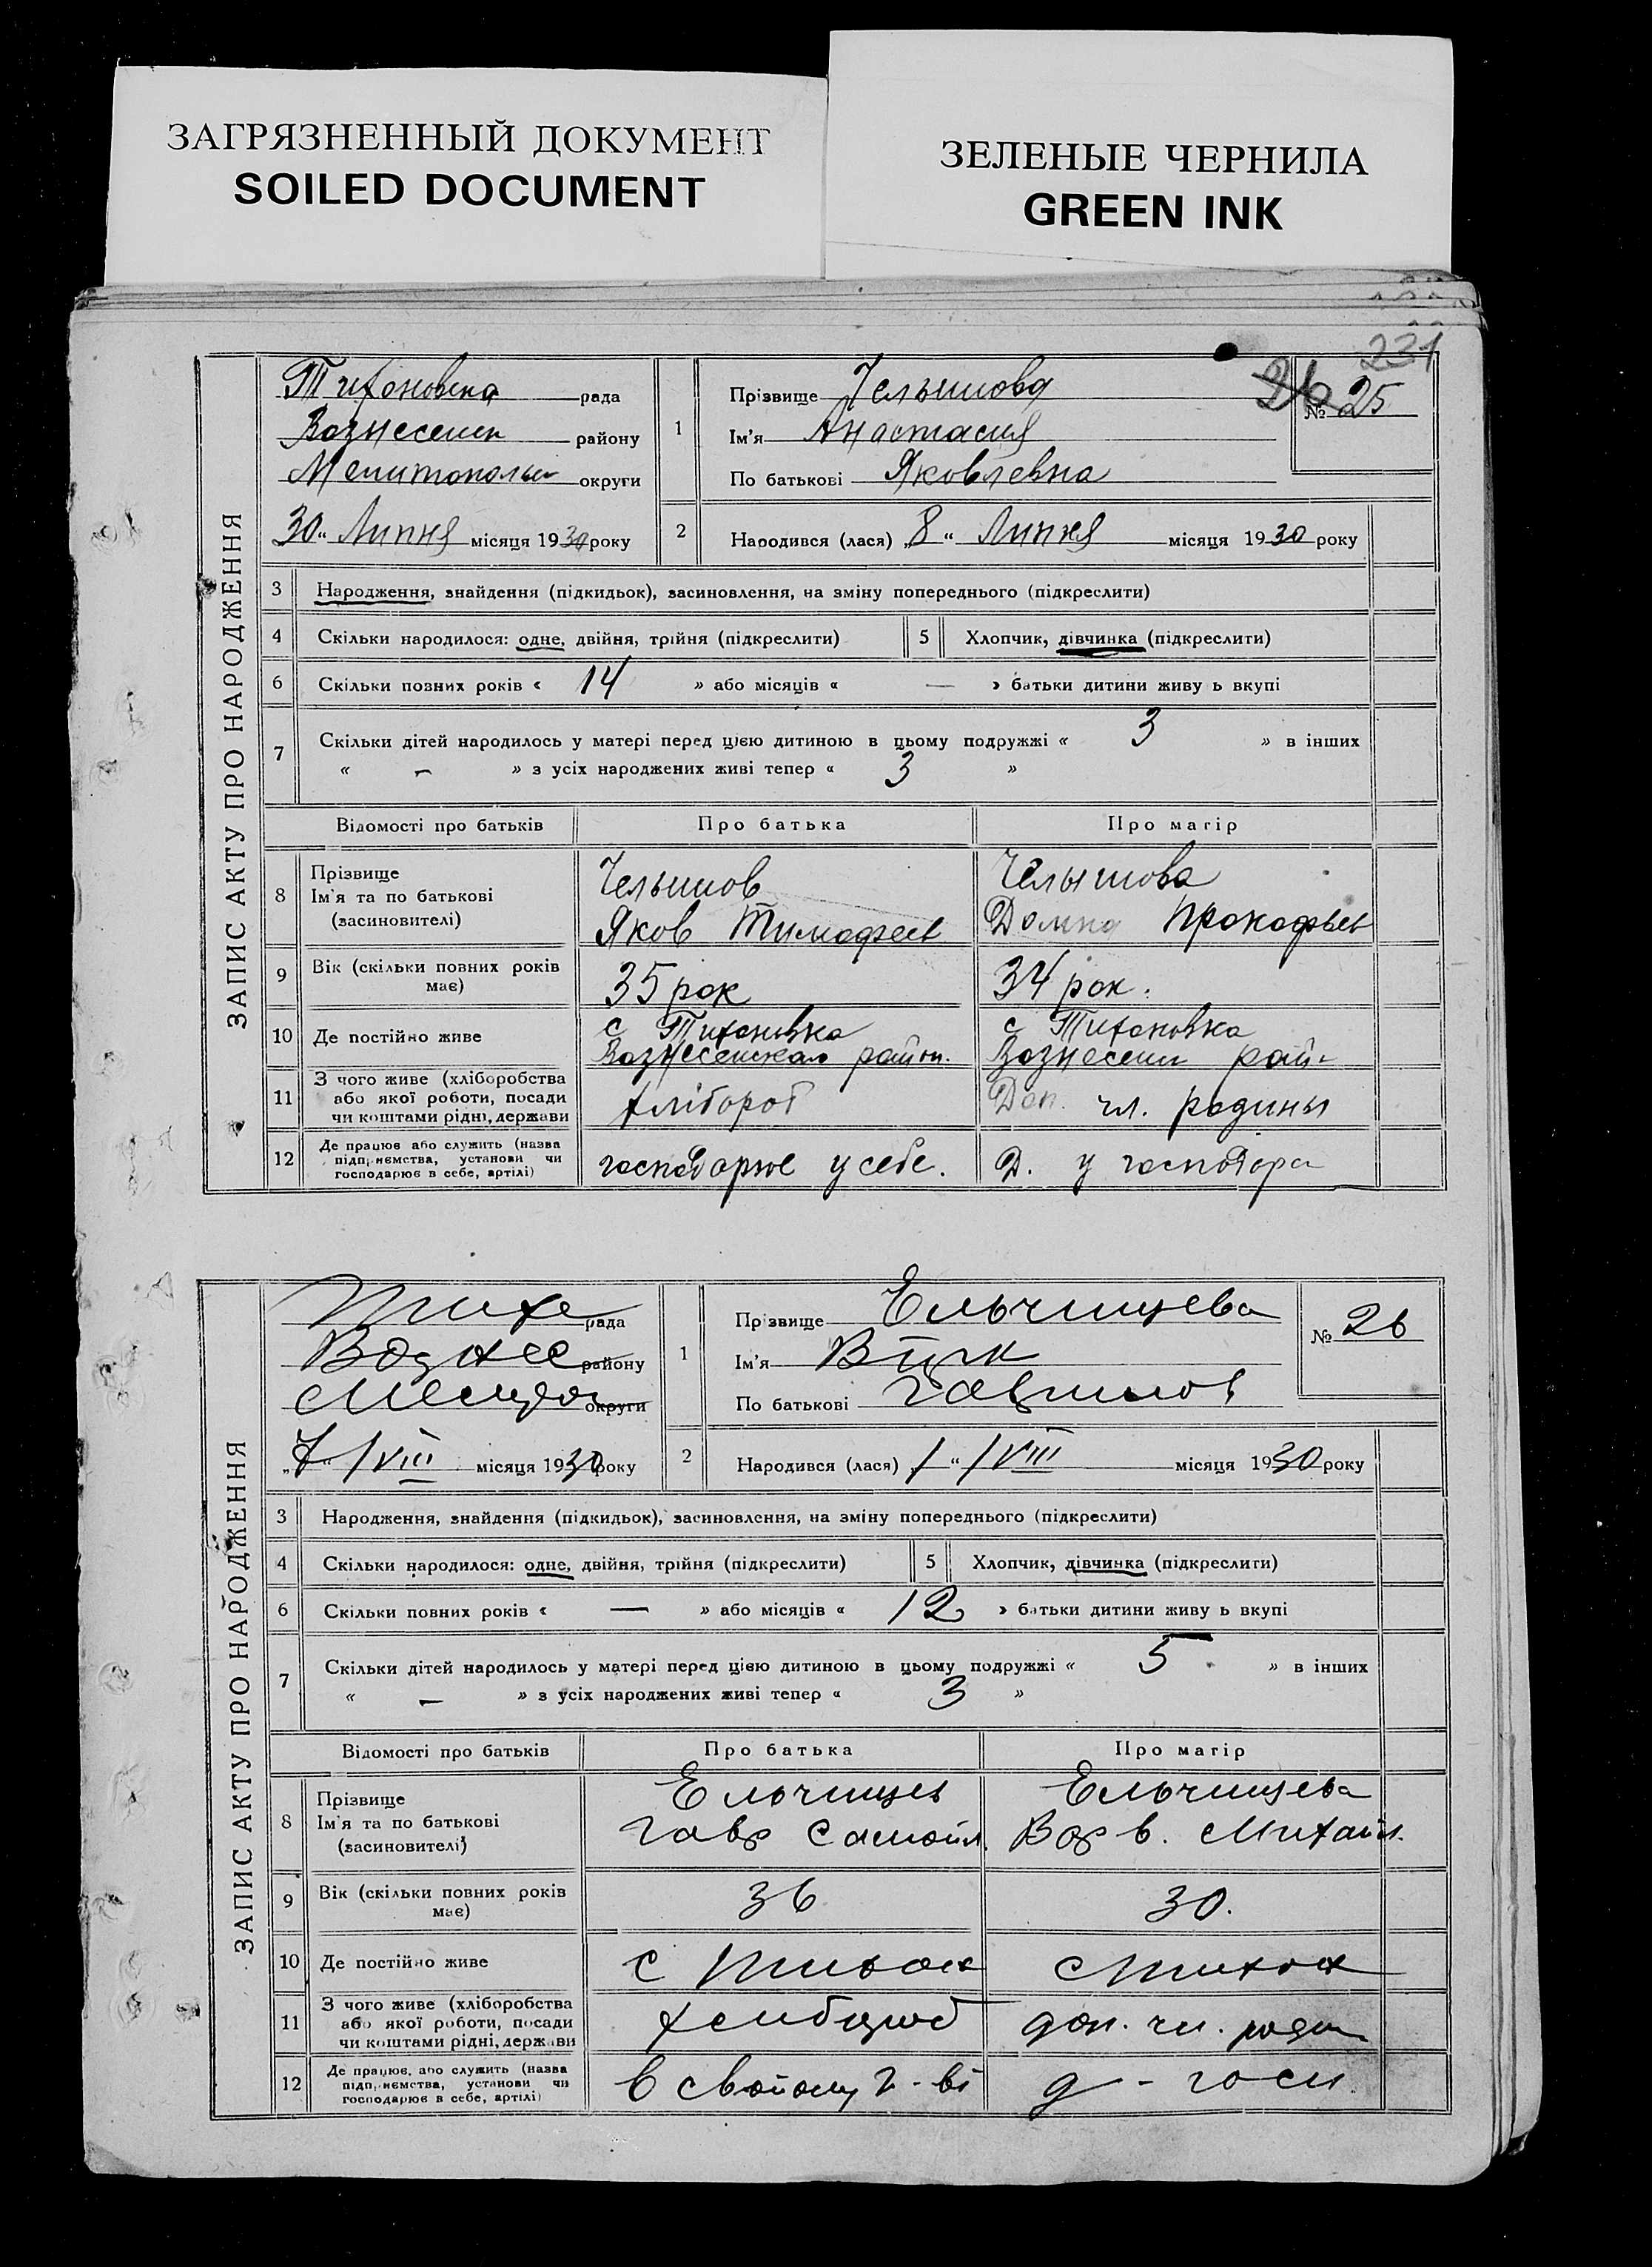 ЗАГРЯЗНЕННЫЙ ДОКУМЕНТ
SOILED DOCUMENT
ЗЕЛЕНЫЕ ЧЕРНИЛА
GREEN INK
231
ЗАПИС АКТУ ПРО НАРОДЖЕННЯ
Тихоновка рада
Вознесенск району
Мелитопольск округи
„30“ Липня місяця 1930 року
1 Прізвище Челышова
Ім'я Анастасия
По батькові Яковлевна
26 № 25
2 Народився (лася) „8“ Липня місяця 1930 року
3 Народження, знайдення (підкидьок), засиновлення, на зміну попереднього (підкреслити)
4 Скільки народилося: одне, двійня, трійня (підкреслити) 5 Хлопчик, дівчинка (підкреслити)
6 Скільки повних років « 14 » або місяців « — » батьки дитини живу ь вкупі
7 Скільки дітей народилось у матері перед цією дитиною в цьому подружжі « 3 » в інших
« — » з усіх народжених живі тепер « 3 »
Відомості про батьків Про батька Про матір
8 Прізвище
Ім'я та по батькові
(засиновителі)
Челышов
Яков Тимофеев
Челышова
Домна Прокофьев
9 Вік (скільки повних років
має)
35 рок
34 рок.
10 Де постійно живе
с Тихоновка
Вознесенскаго район.
с Тихоновка
Вознесенск рай-
11 З чого живе (хліборобства
або якої роботи, посади
чи коштами рідні, держави
хлібороб
Доп. чл. родины
12 Де працює або служить (назва
підприємства, установи чи
господарює в себе, артілі)
господарює у себе.
Д. у господара
ЗАПИС АКТУ ПРО НАРОДЖЕННЯ
Тихо рада
Вознес району
округи
„7“ /VIII місяця 1930 року
1 Прізвище Ельчищева
Ім'я
По батькові Гаврилов
№ 26
2 Народився (лася) „1“ /VIII місяця 1930 року
3 Народження, знайдення (підкидьок), засиновлення, на зміну попереднього (підкреслити)
4 Скільки народилося: одне, двійня, трійня (підкреслити) 5 Хлопчик, дівчинка (підкреслити)
6 Скільки повних років « — » або місяців « 12 » батьки дитини живу ь вкупі
7 Скільки дітей народилось у матері перед цією дитиною в цьому подружжі « 5 » в інших
« — » з усіх народжених живі тепер « 3 »
Відомості про батьків Про батька Про матір
8 Прізвище
Ім'я та по батькові
(засиновителі)
Ельчищев
Гавр Самойл.
Ельчищева
Варв. Михайл.
9 Вік (скільки повних років
має)
36
30.
10 Де постійно живе
с Тихон
с Тихон
11 З чого живе (хліборобства
або якої роботи, посади
чи коштами рідні, держави
хлибороб
доп. чл. родин
12 Де працює, або служить (назва
підприємства, установи чи
господарює в себе, артілі)
в свойому г-ві
д - госп